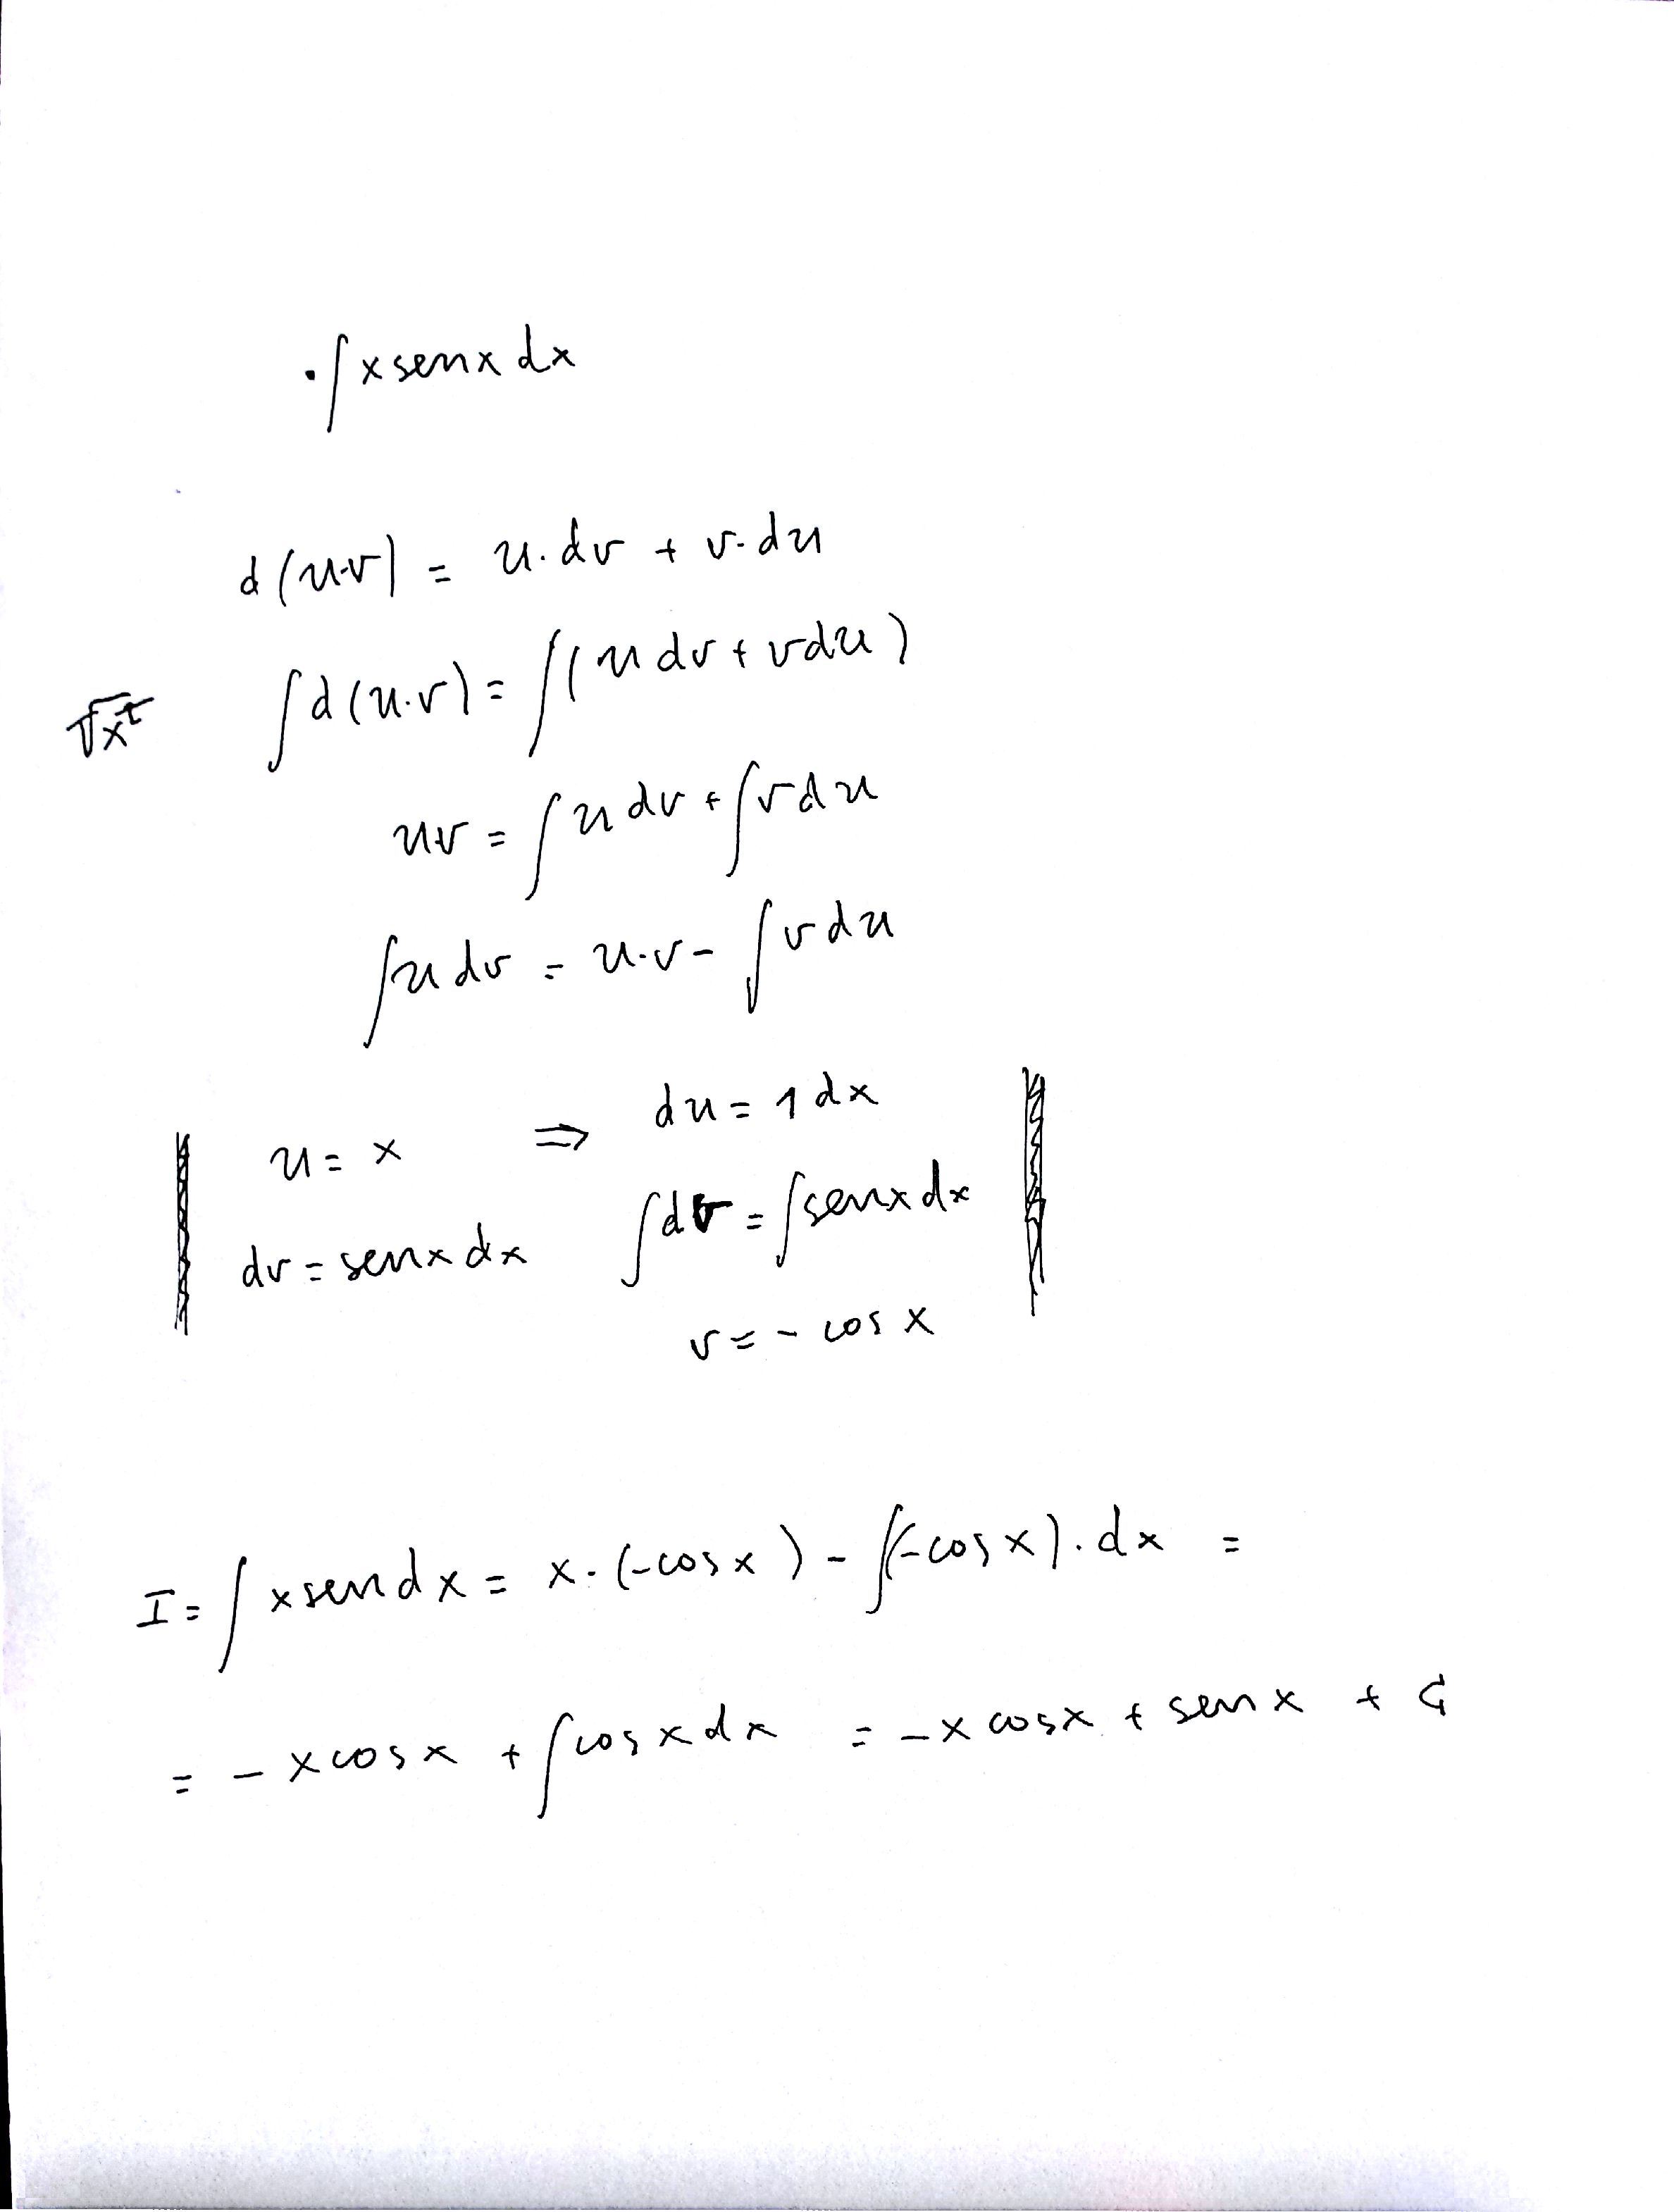 · ∫ x sen x dx
d(u·v) = u·dv + v·du
√x^t
∫ d(u·v) = ∫ (u dv + v du)
uv = ∫ u dv + ∫ v du
∫ u dv = u·v - ∫ v du
u = x ⇒ du = 1 dx
dv = sen x dx ∫ dv = ∫ sen x dx
v = - cos x
I = ∫ x sen dx = x·(-cos x) - ∫(-cos x)·dx =
= - x cos x + ∫ cos x dx = - x cos x + sen x + C